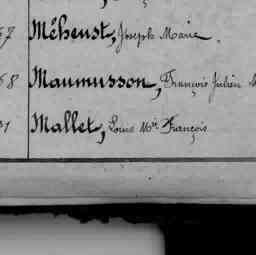 Méheust, Joseph Marie.
Maumusson, François Julien
Mallet, Louis Mie François